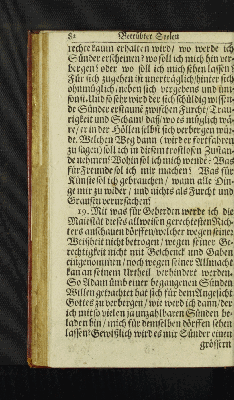 82 Betrübter Seelen
rechte kaum erhalten wird / wo werde ich
Sünder erscheinen? wo soll ich mich hin ver-
bergen? oder wo soll ich mich sehen lassen?
Für sich zugehen ist unerträglich / hinter sich
ohnmüglich / neben sich vergebens und üm-
sonst. Und so sehr wird der sich schuldig wissen-
de Sünder erstaunt zwischen Furcht / Trau-
rigkeit und Scham / daß / wo es müglich wä-
re / er in der Höllen selbst sich verbergen wür-
de. Welchen Weg dann (wird er fortfahren
zu sagen) soll ich in diesem trostlosen Zustan-
de nehmen? Wohin sol ich mich wende? Was
für Freunde sol ich mir machen? Was für
Künste sol ich gebrauchen / wann alle Din-
ge mir zu wider / und nichts als Furcht und
Grausen verursachen?
19. Mit was für Geberden werde ich die
Majestät dieses allweisen gerechtesten Rich-
ters anschauen dörffen / welcher wegen seiner
Weisheit nicht betrogen / wegen seiner Ge-
rechtigkeit nicht mit Geschenck und Gaben
eingenommen / noch wegen seiner Allmacht
kan an seinem Urtheil verhindert werden.
So Adam ümb einer begangenen Sünden
Willen getrachtet hat sich für dem Angesicht
Gottes zu verbergen / wie werd ich dann / der
ich mit so vielen unzahlbaren Sünden be-
laden bin / mich für demselben dörffen sehen
lassen? Gewißlich wird es mir Sünder einen
grössern